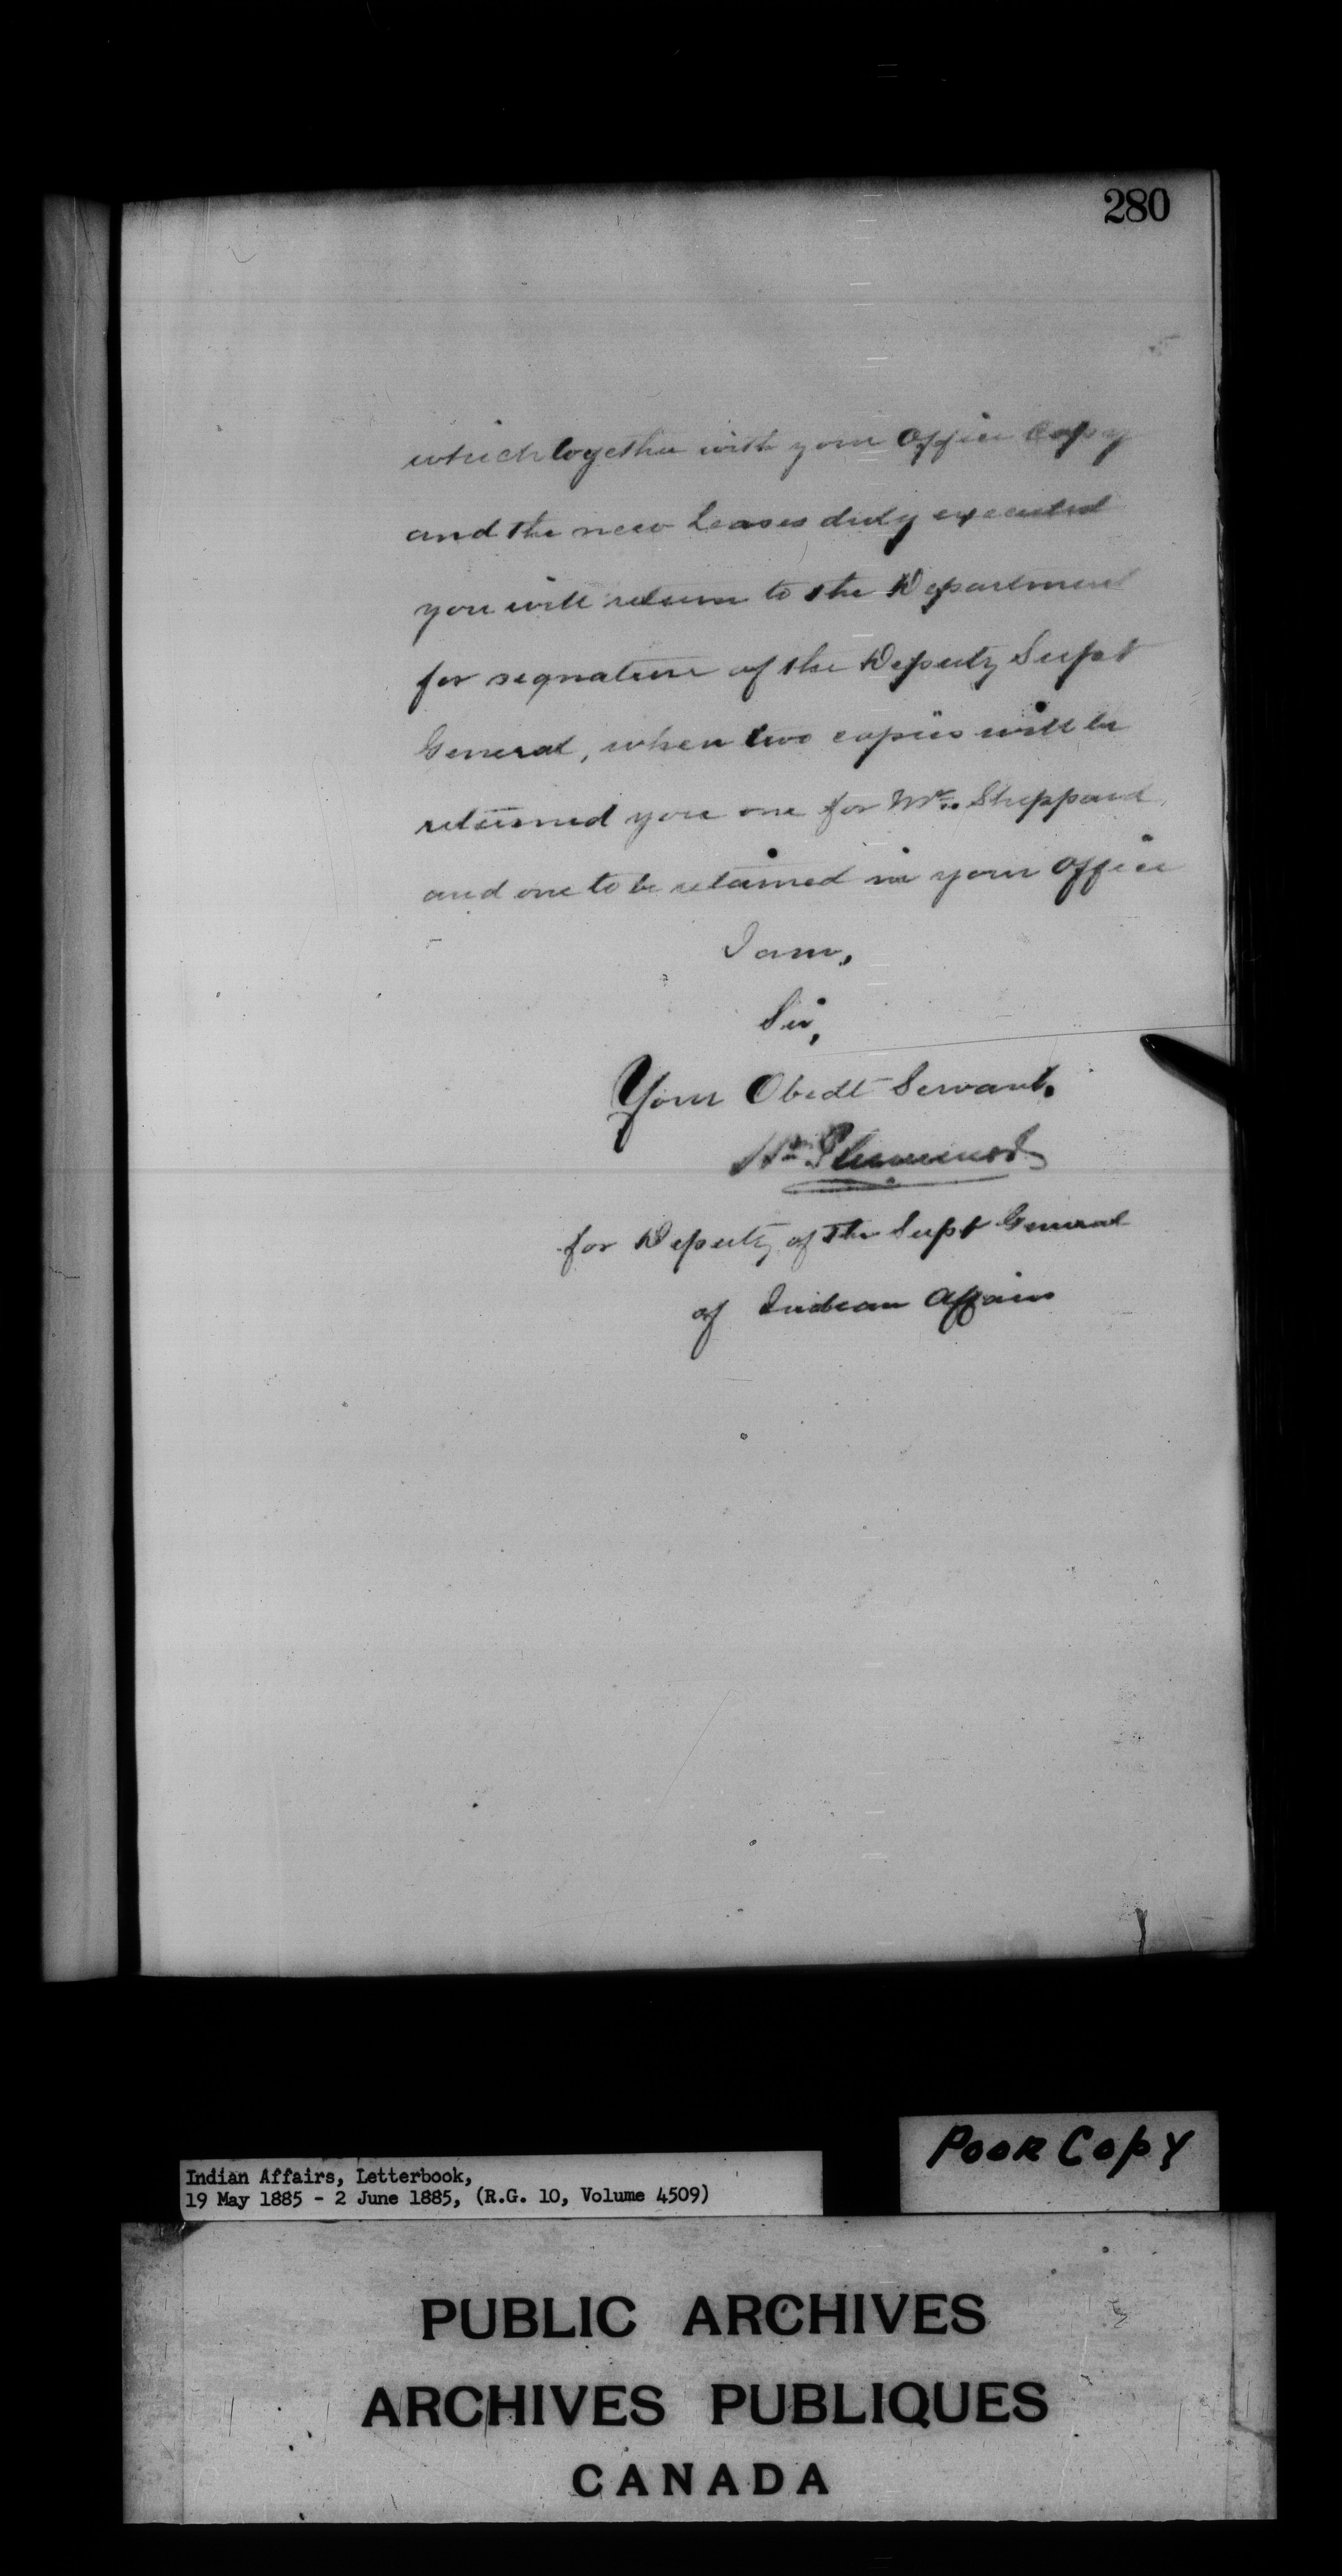 280
which together with your Office Copy
and the new Leases duly executed
you will return to the Department
for signature of the Deputy Supt
General, when two copies will be
returned you one for Mr. Sheppard,
and one to be retained in your Office
I am,
Sir,
Your Obedt Servant.
Wm Plummer
for Deputy of the Supt General
of Indian Affairs
POOR COPY
Indian Affairs, Letterbook,
19 May 1885 - 2 June 1885, (R.G. 10, Volume 4509)
PUBLIC ARCHIVES
ARCHIVES PUBLIQUES
CANADA